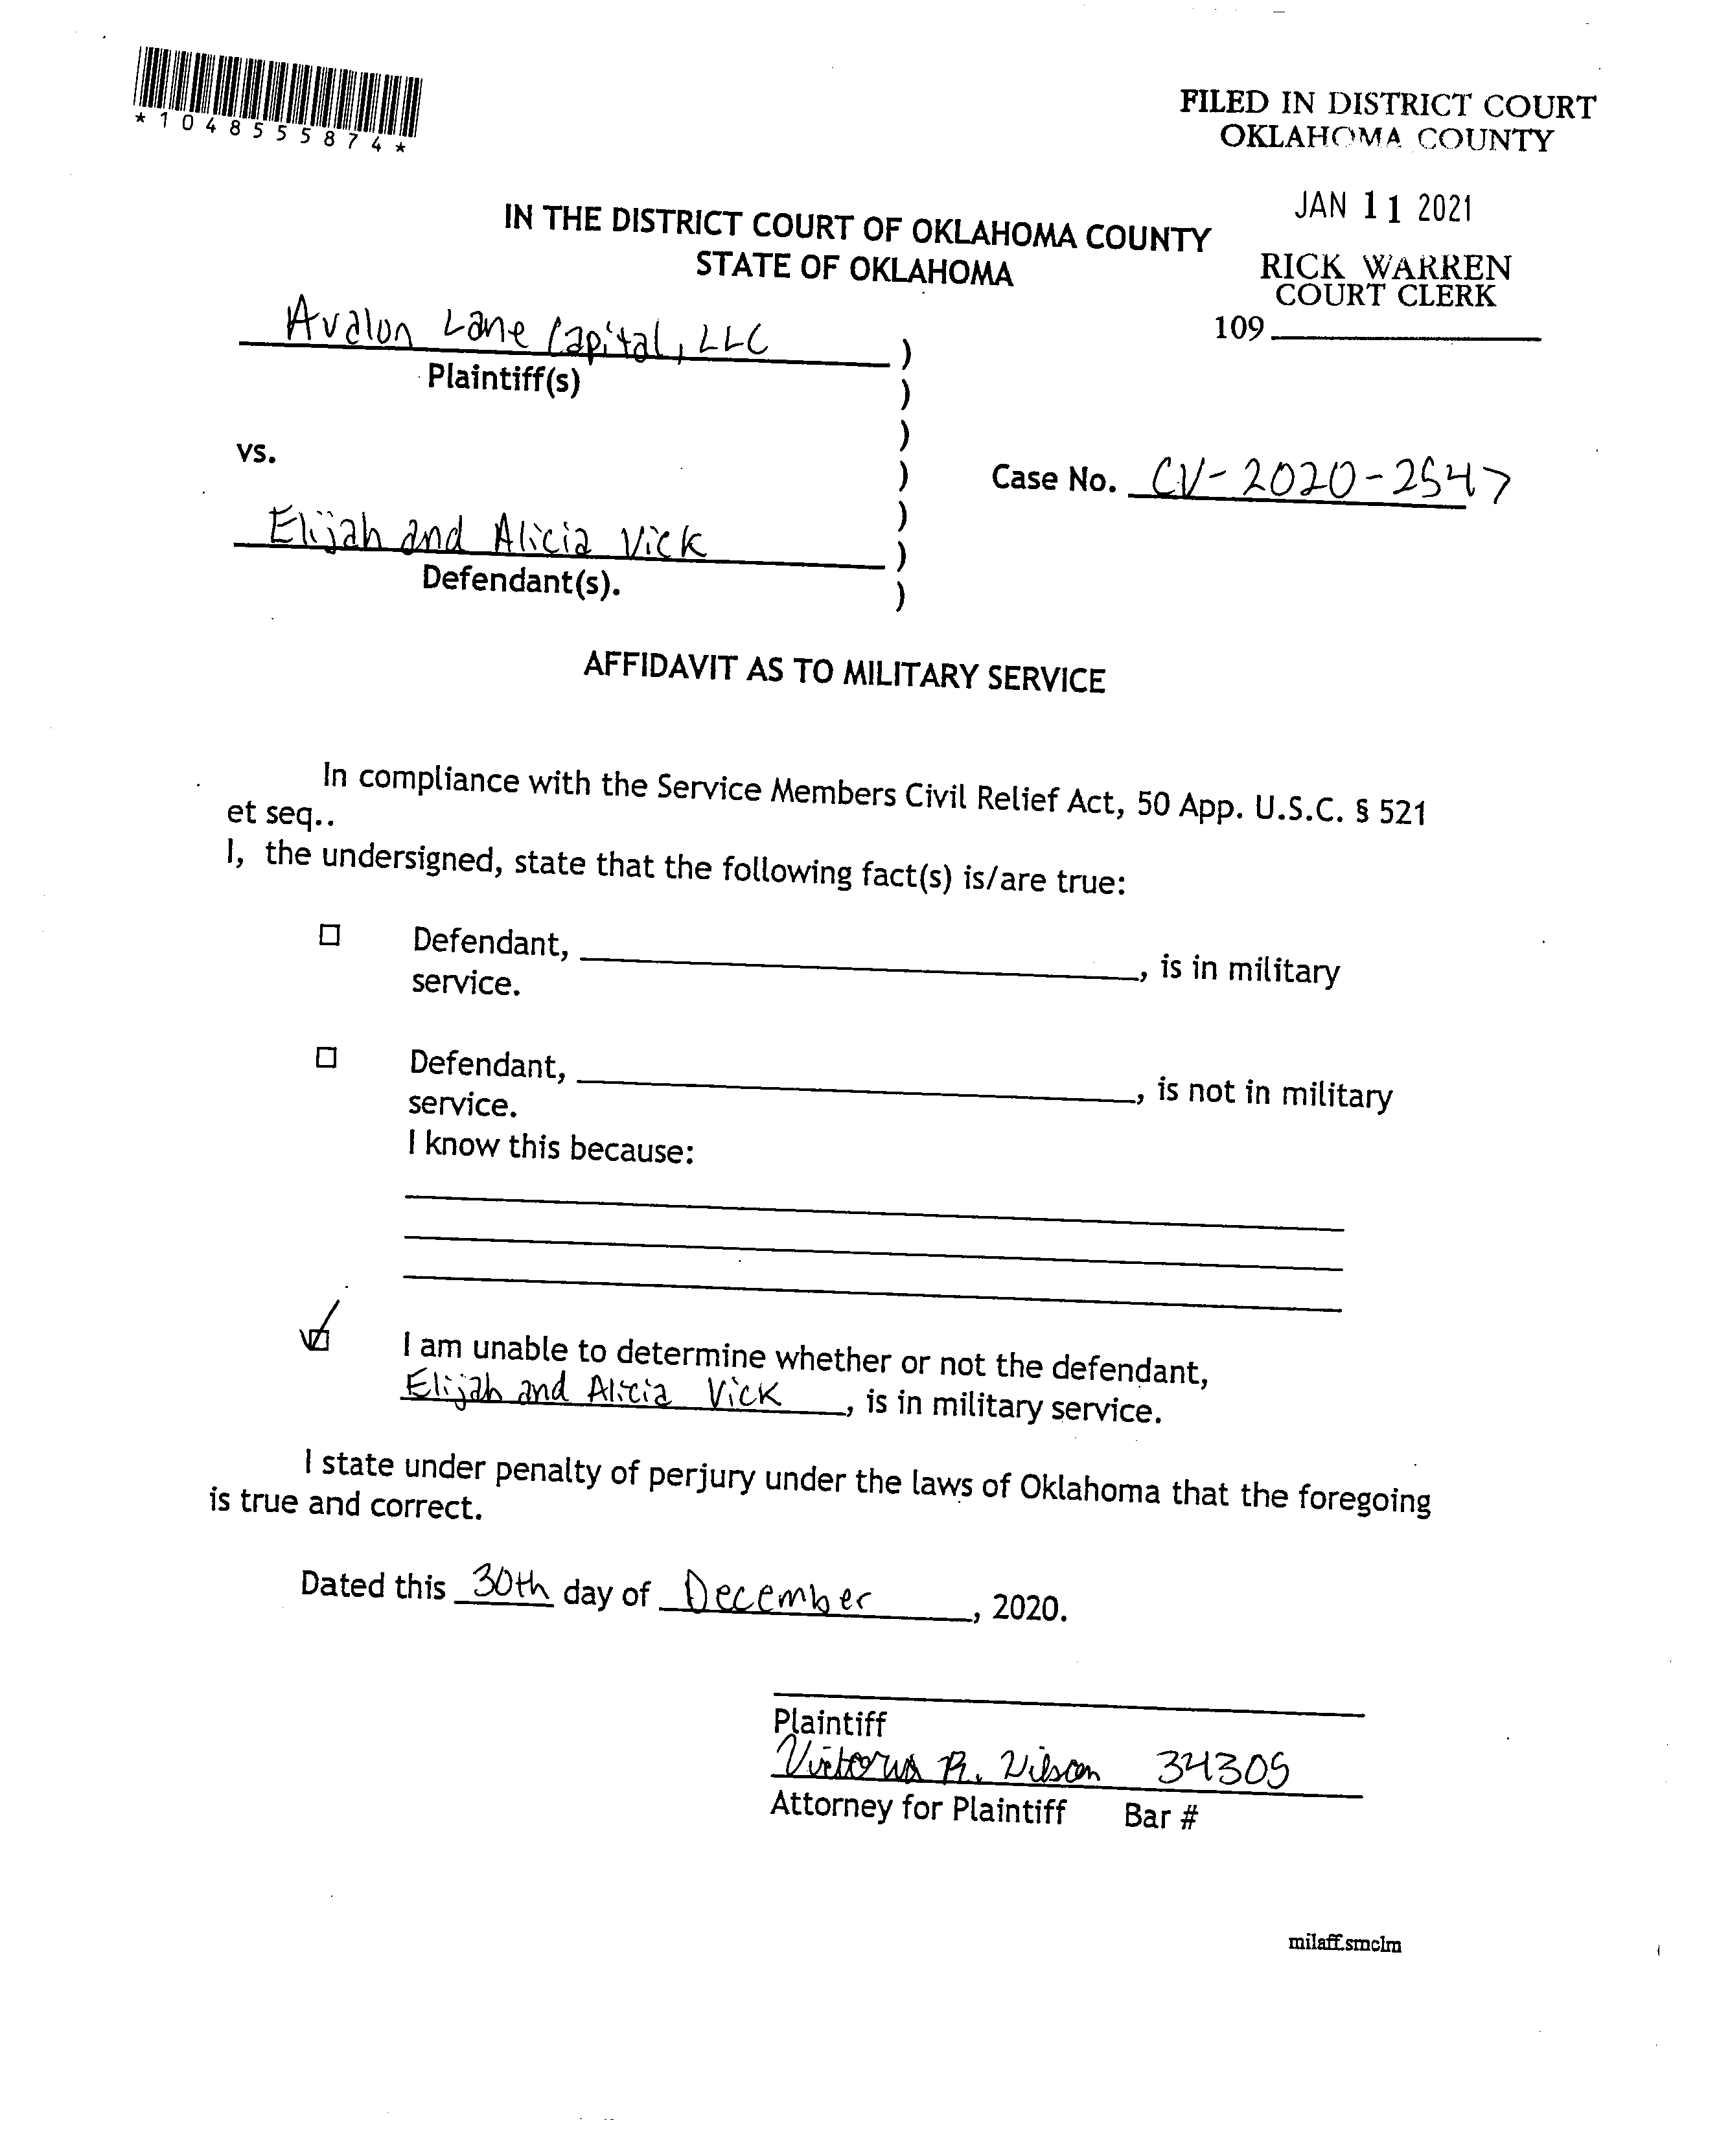 *1048555874*
FILED IN DISTRICT COURT
OKLAHOMA COUNTY
JAN 11 2021
RICK WARREN
COURT CLERK
109
IN THE DISTRICT COURT OF OKLAHOMA COUNTY
STATE OF OKLAHOMA
Avalon Lane Capital, LLC )
Plaintiff(s) )
)
vs. )
Case No. CV-2020-2547
)
Elijah and Alicia Vick )
Defendant(s). )
AFFIDAVIT AS TO MILITARY SERVICE
In compliance with the Service Members Civil Relief Act, 50 App. U.S.C. § 521
et seq..
I, the undersigned, state that the following fact(s) is/are true:
☐ Defendant, ____, is in military
service.
☐ Defendant, ____, is not in military
service.
I know this because:
☑ I am unable to determine whether or not the defendant,
Elijah and Alicia Vick, is in military service.
I state under penalty of perjury under the laws of Oklahoma that the foregoing
is true and correct.
Dated this 30th day of December, 2020.
Plaintiff
Victoria R. Wilson 34305
Attorney for Plaintiff Bar #
milaff.smclm